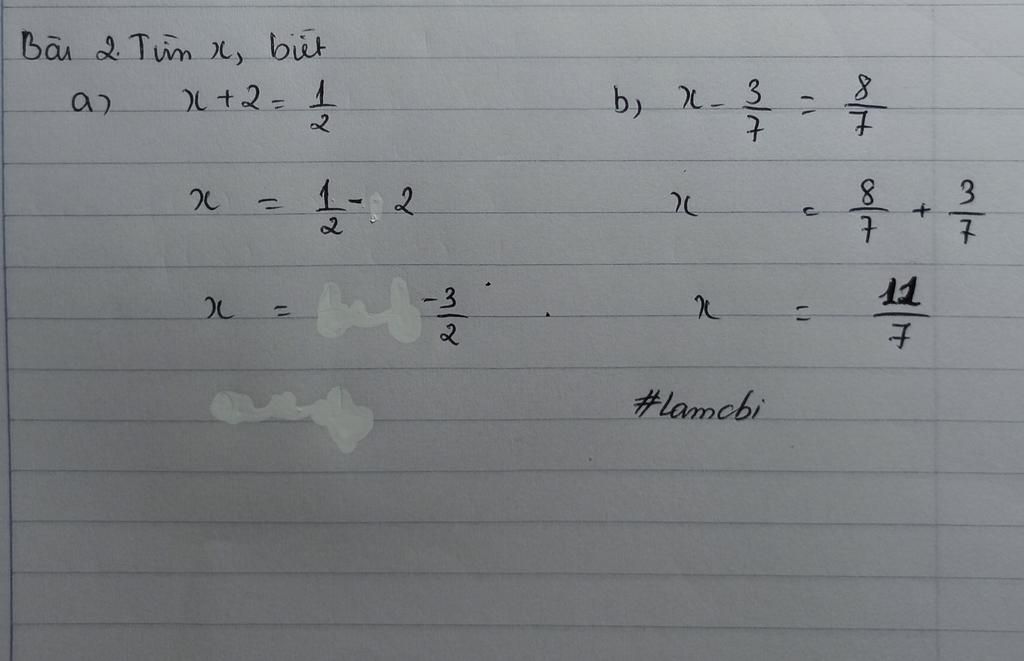 Bài 2. Tìm x, biết
a) x + 2 = 1/2
x = 1/2 - 2
x = -3/2
b) x - 3/7 = 8/7
x = 8/7 + 3/7
x = 11/7
#Lamcbi